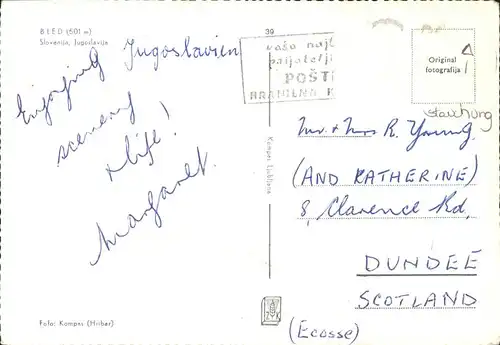 BLED (501 m)
Slovenija, Jugoslavija
Enjoying Jugoslavien
scenery
& life!
Margaret.
39
vaša
POŠT
Original
fotografija
Kompas Ljubljana
Mr & Mrs R. Young.
(AND KATHERINE)
8, Clarence Rd,
DUNDEE
SCOTLAND
(Ecosse)
Foto: Kompas (Hriber)